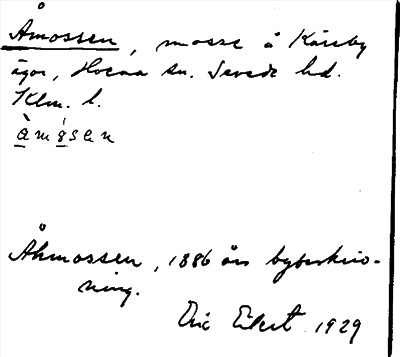 Åmossen, mosse å Kåreby
ägor, Horna sn. Sevede hd.
Klm. l.
àmǫ́sen
Åhmossen, 1886 års bybeskriv-
ning.
Eric Elert 1929